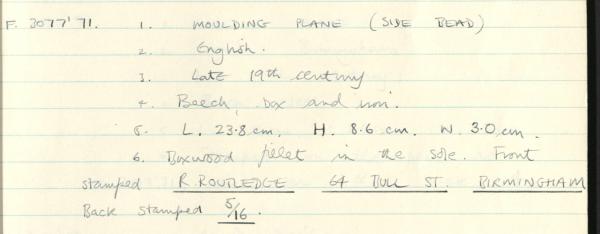 F. 3077'71. 1. MOULDING PLANE (SIDE BEAD)
2. English.
3. Late 19th century
4. Beech, box and iron.
5. L. 23.8 cm. H. 8.6 cm. W. 3.0 cm.
6. Boxwood fillet in the sole. Front
stamped R. ROUTLEDGE 64 BULL ST. BIRMINGHAM
Back stamped 5/16.